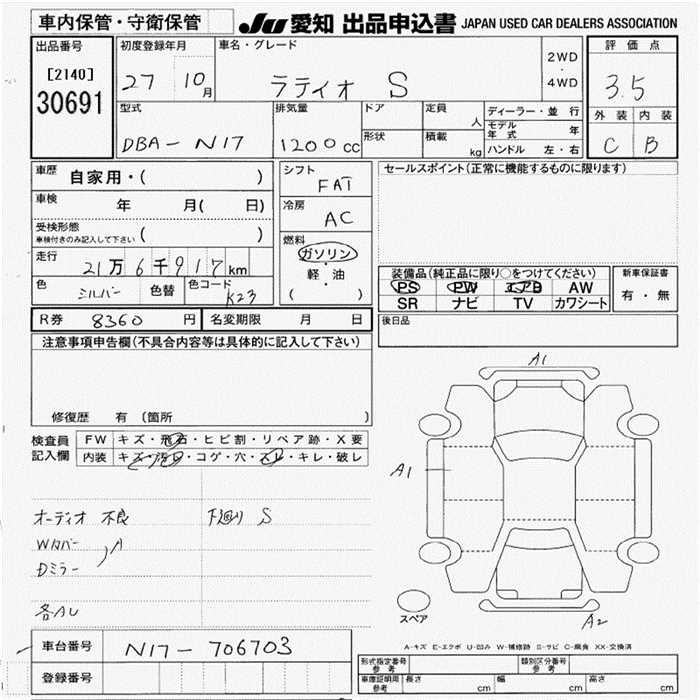 車内保管・守衛保管 JU 愛知 出品申込書 JAPAN USED CAR DEALERS ASSOCIATION
出品番号
[2140]
30691
初度登録年月
27 10月
車名・グレード
ラティオ S
2WD
・
4WD
評価点
3.5
外装 内装
C B
型式
DBA-N17
排気量
1200cc
ドア
形状
定員
人
積載
kg
ディーラー・並行
モデル年式 年
ハンドル 左・右
車歴 自家用・( )
車検 年 月( 日)
受検形態
車検付きのみ記入して下さい ( )
走行 21万6千917km
色 シルバー 色替 色コード K23
シフト
FAT
冷房
AC
燃料
ガソリン
・
軽・油
( )
セールスポイント(正常に機能するものに限ります)
装備品(純正品に限り○をつけてください)
PS PW エアB AW
SR ナビ TV カワシート
新車保証書
有・無
R券 8360円 名変期限 月 日
後日品
注意事項申告欄(不具合内容等は具体的に記入して下さい)
修復歴 有 (箇所 )
検査員記入欄
FW キズ・飛石・ヒビ割・リペア跡・X要
内装 キズ・汚レ・コゲ・穴・スレ・キレ・破レ
オーディオ 不良 下廻り S
Wカバー
Dミラー
A
各AU
A1
A1
A2
スペア
A-キズ E-エクボ U-凹み W-補修跡 S-サビ C-腐食 XX-交換済
車台番号 N17-706703
登録番号
形式指定番号 参考
類別区分番号 参考
車庫証明用 参考 長さ cm 幅 cm 高さ cm